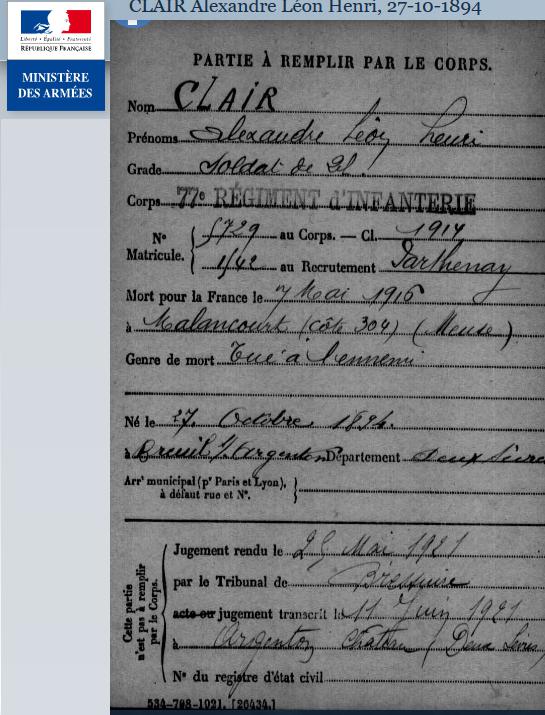 CLAIR Alexandre Léon Henri, 27-10-1894
Liberté • Égalité • Fraternité
RÉPUBLIQUE FRANÇAISE
MINISTÈRE
DES ARMÉES
PARTIE À REMPLIR PAR LE CORPS.
Nom CLAIR
Prénoms Alexandre Léon Henri
Grade Soldat de 2e Cl.
Corps 77e RÉGIMENT d'INFANTERIE
N° Matricule. 5729 au Corps. — Cl. 1914
1142 au Recrutement Parthenay
Mort pour la France le 7 Mai 1916
à Malancourt (côte 304) (Meuse)
Genre de mort Tué à l'ennemi
Né le 27 Octobre 1894.
à Breuil s/ Argenton Département Deux Sèvres
Arrt municipal (pr Paris et Lyon),
à défaut rue et N°.
Cette partie
n'est pas à remplir
par le Corps.
Jugement rendu le 25 Mai 1921
par le Tribunal de Bressuire
acte ou jugement transcrit le 11 Juin 1921
à Argenton Château (Deux Sèvres)
N° du registre d'état civil
534-708-1921. [26434.]